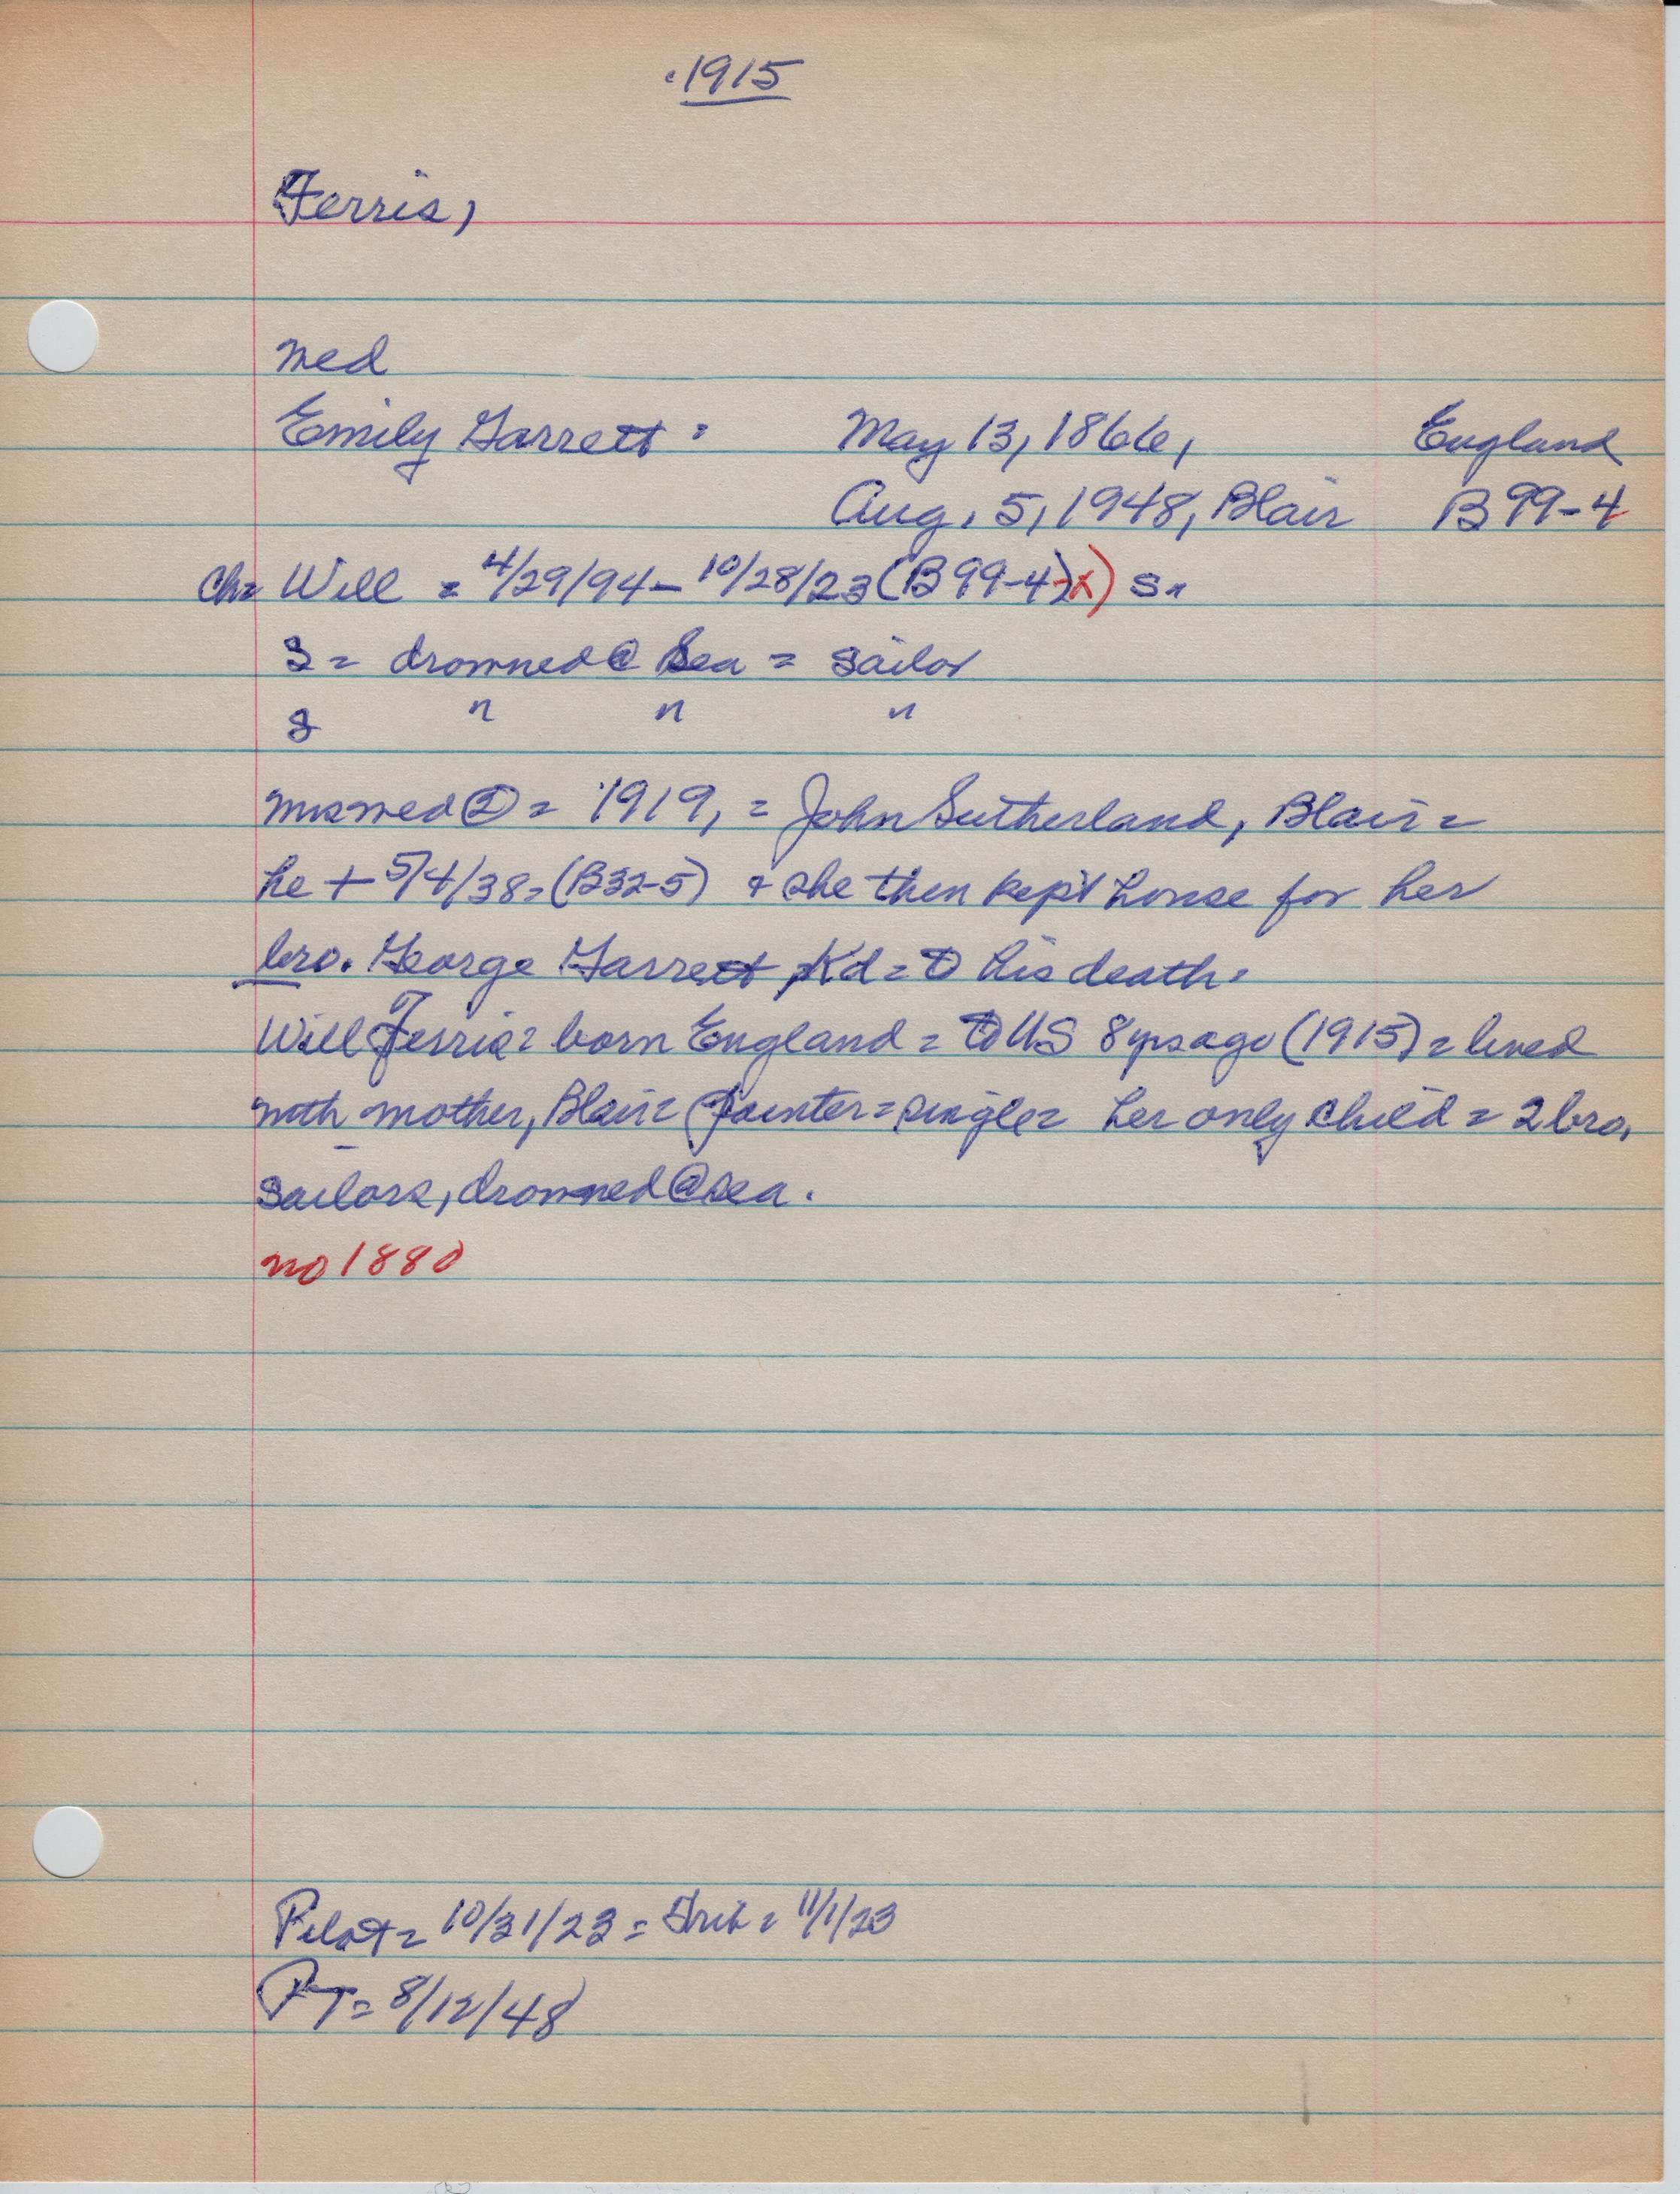 1915
Ferris,
wed
Emily Garrett = May 13, 1866, England
Aug. 5, 1948, Blair B 99-4
Ch= Will = 4/29/94 - 10/28/23 (B 99-4-x) S=
S = drowned @ Sea = sailor
S " " "
wed ② = 1919, = John Sutherland, Blair =
he + 5/4/38 = (B32-5) & she then kept house for her
bro. George Garrett, Kd = to his death =
Will Ferris = born England = to US 8 yrs ago (1915) = lived
with mother, Blair = painter = single = her only child = 2 bro.
sailors, drowned @ sea.
no 1880
Pilot = 10/31/23 = Trib = 11/1/23
PT = 8/12/48